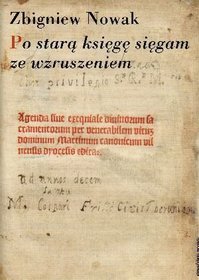 Zbigniew Nowak
Po starą księgę sięgam
ze wzruszeniem
Cum privilegio S. R. M.
Agenda siue exequiale diuinorum sa
cramentorum per venerabilem viruz
dominum Martinum canonicum vil
nensis dyocesis edita:
ad annos decem
M. Caspari